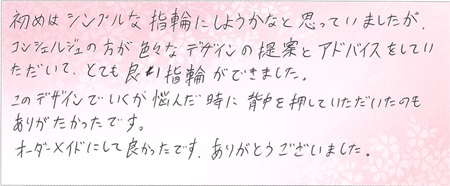 初めはシンプルな指輪にしようかなと思っていましたが、
コンシェルジュの方が色々なデザインの提案とアドバイスをしてい
ただいて、とても良い指輪ができました。
このデザインでいくか悩んだ時に背中を押していただいたのも
ありがたかったです。
オーダーメイドにして良かったです、ありがとうございました。